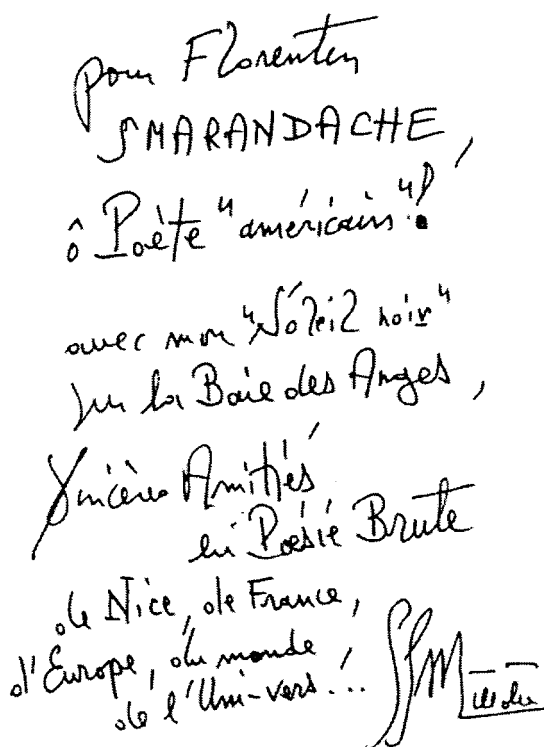 pour Florentin
SMARANDACHE,
ô Poète "américain"!
avec mon "Soleil noir"
sur la Baie des Anges,
Sincères Amitiés
en Poésie Brute
de Nice, de France,
d'Europe, du monde
de l'Uni-vers...!